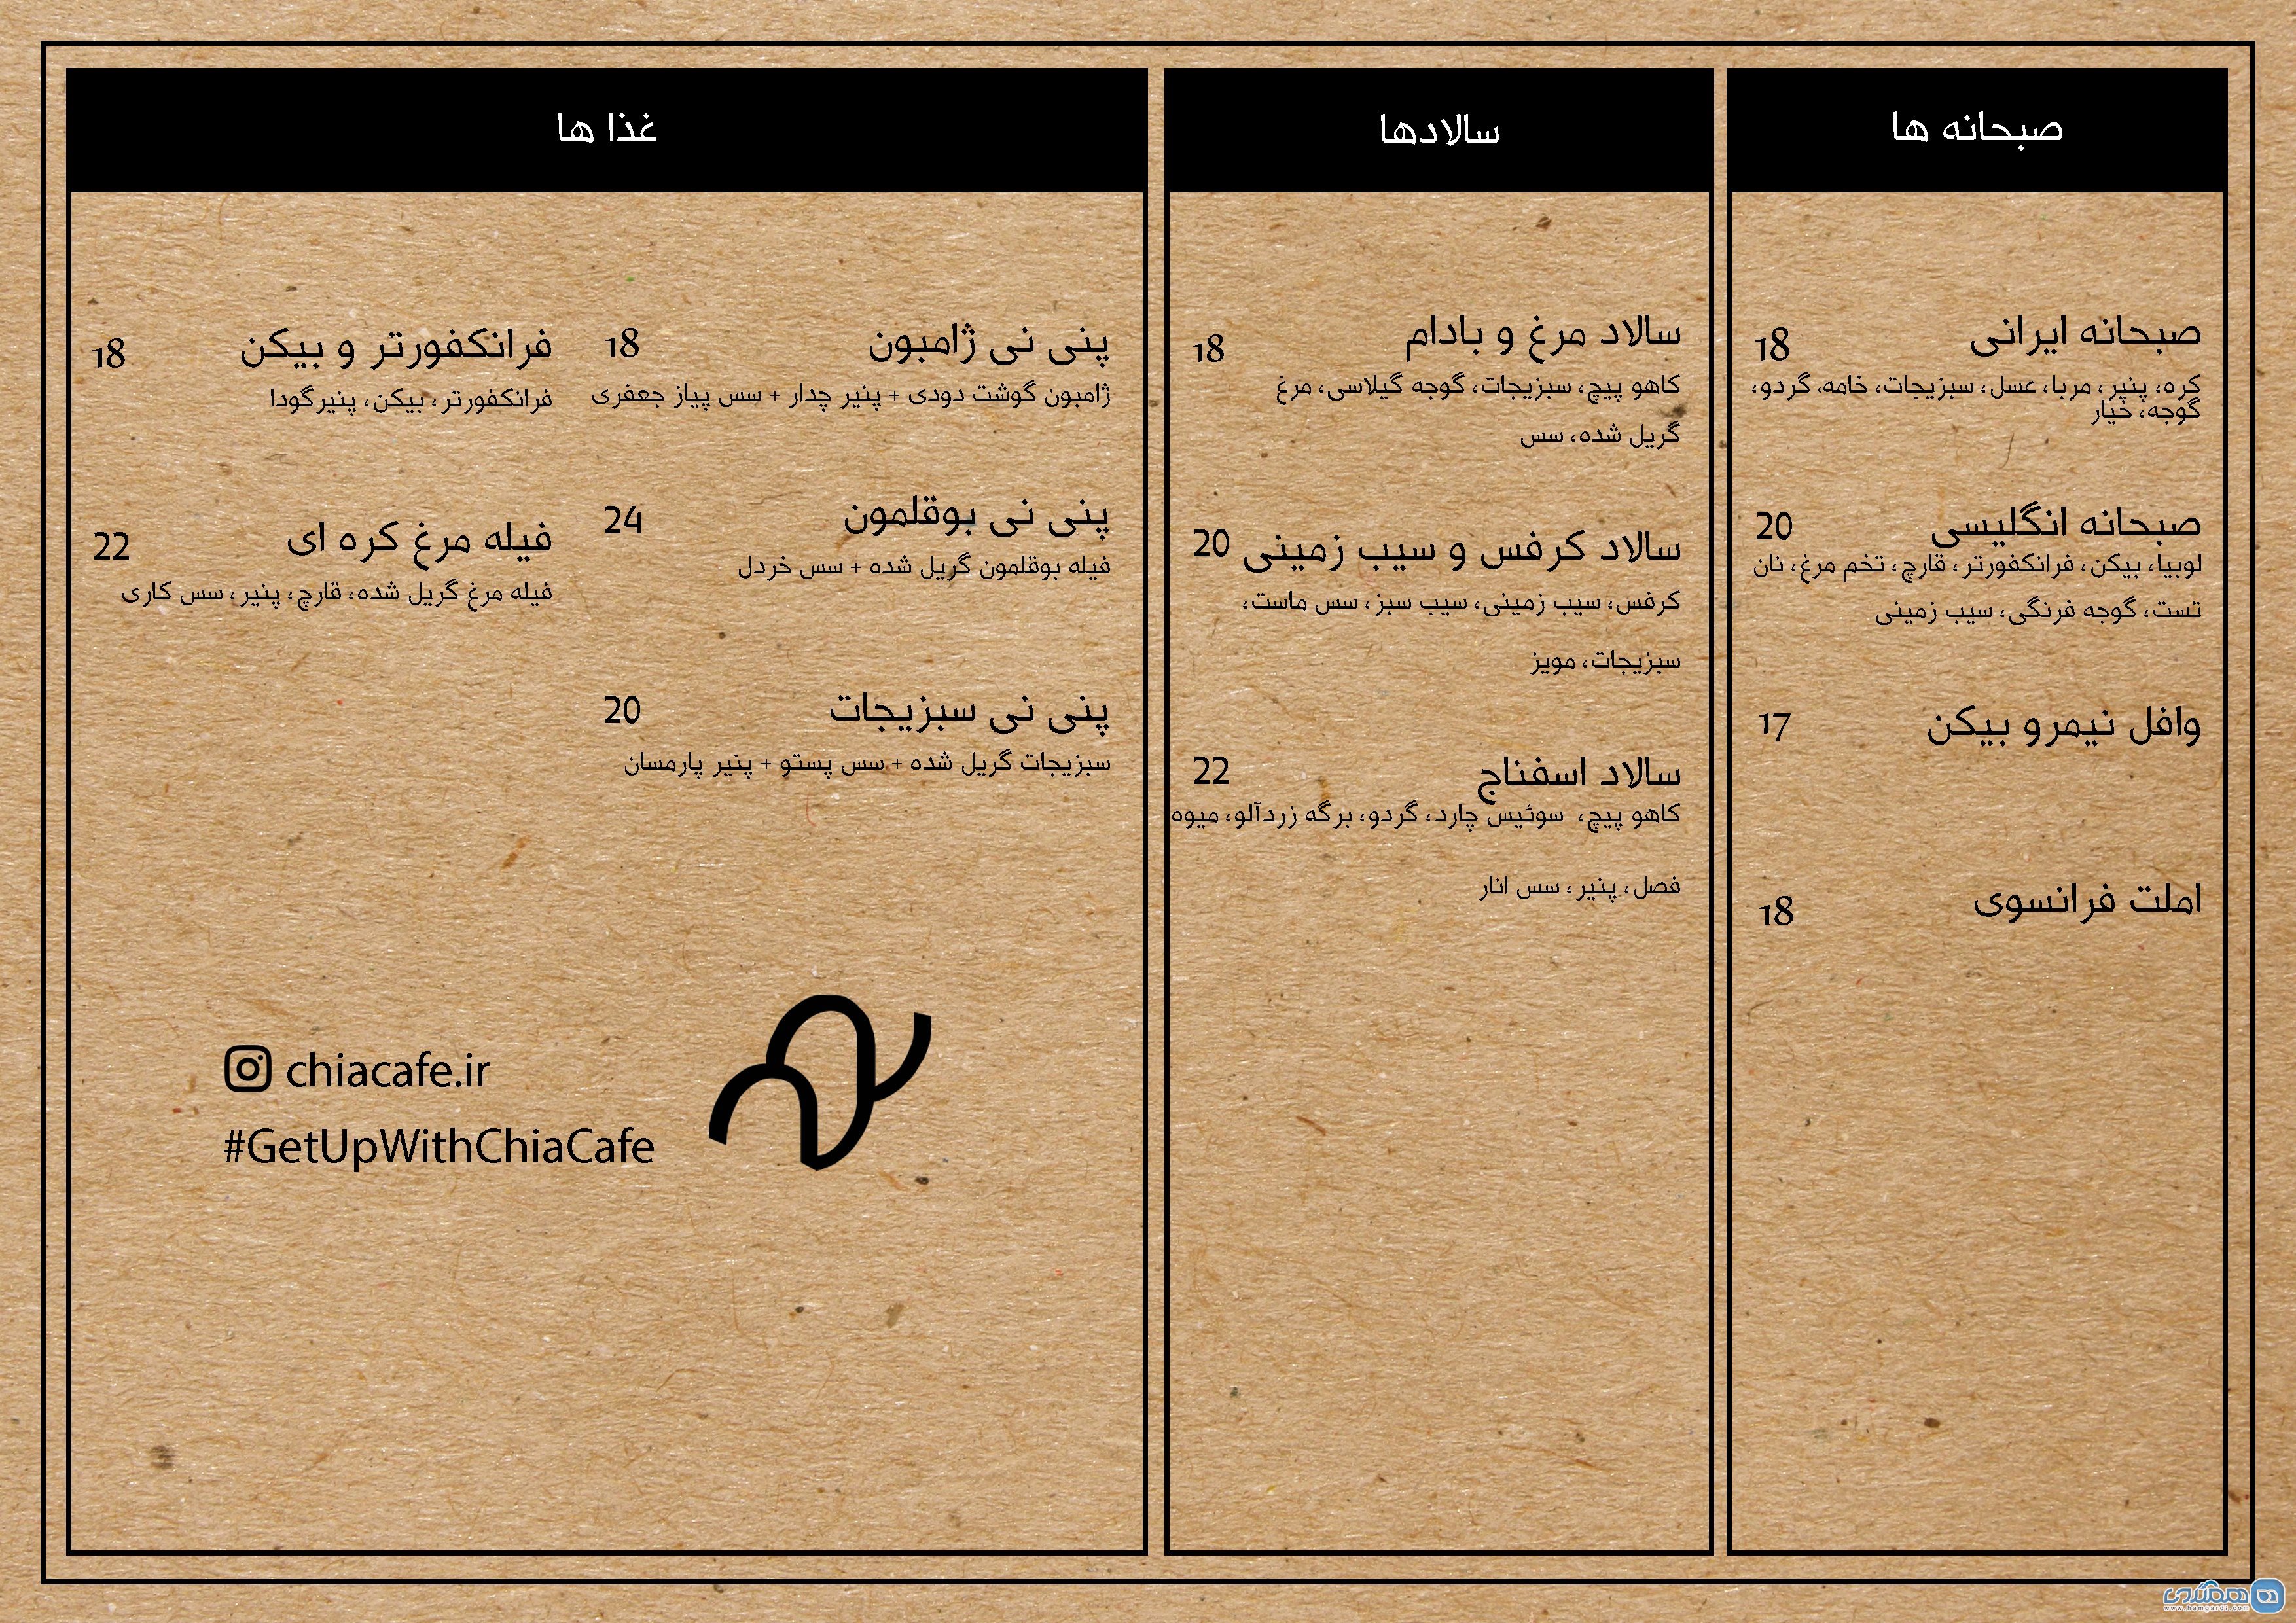 صبحانه ها
صبحانه ایرانی 18
کره، پنیر، مربا، عسل، سبزیجات، خامه، گردو،
گوجه، خیار
صبحانه انگلیسی 20
لوبیا، بیکن، فرانکفورتر، قارچ، تخم مرغ، نان
تست، گوجه فرنگی، سیب زمینی
وافل نیمرو بیکن 17
املت فرانسوی 18
سالادها
سالاد مرغ و بادام 18
کاهو پیچ، سبزیجات، گوجه گیلاسی، مرغ
گریل شده، سس
سالاد کرفس و سیب زمینی 20
کرفس، سیب زمینی، سیب سبز، سس ماست،
سبزیجات، مویز
سالاد اسفناج 22
کاهو پیچ، سوئیس چارد، گردو، برگه زردآلو، میوه
فصل، پنیر، سس انار
غذا ها
پنی نی ژامبون 18
ژامبون گوشت دودی + پنیر چدار + سس پیاز جعفری
پنی نی بوقلمون 24
فیله بوقلمون گریل شده + سس خردل
پنی نی سبزیجات 20
سبزیجات گریل شده + سس پستو + پنیر پارمسان
فرانکفورتر و بیکن 18
فرانکفورتر، بیکن، پنیرگودا
فیله مرغ کره ای 22
فیله مرغ گریل شده، قارچ، پنیر، سس کاری
chiacafe.ir
#GetUpWithChiaCafe
همگردی
www.hamgardi.com